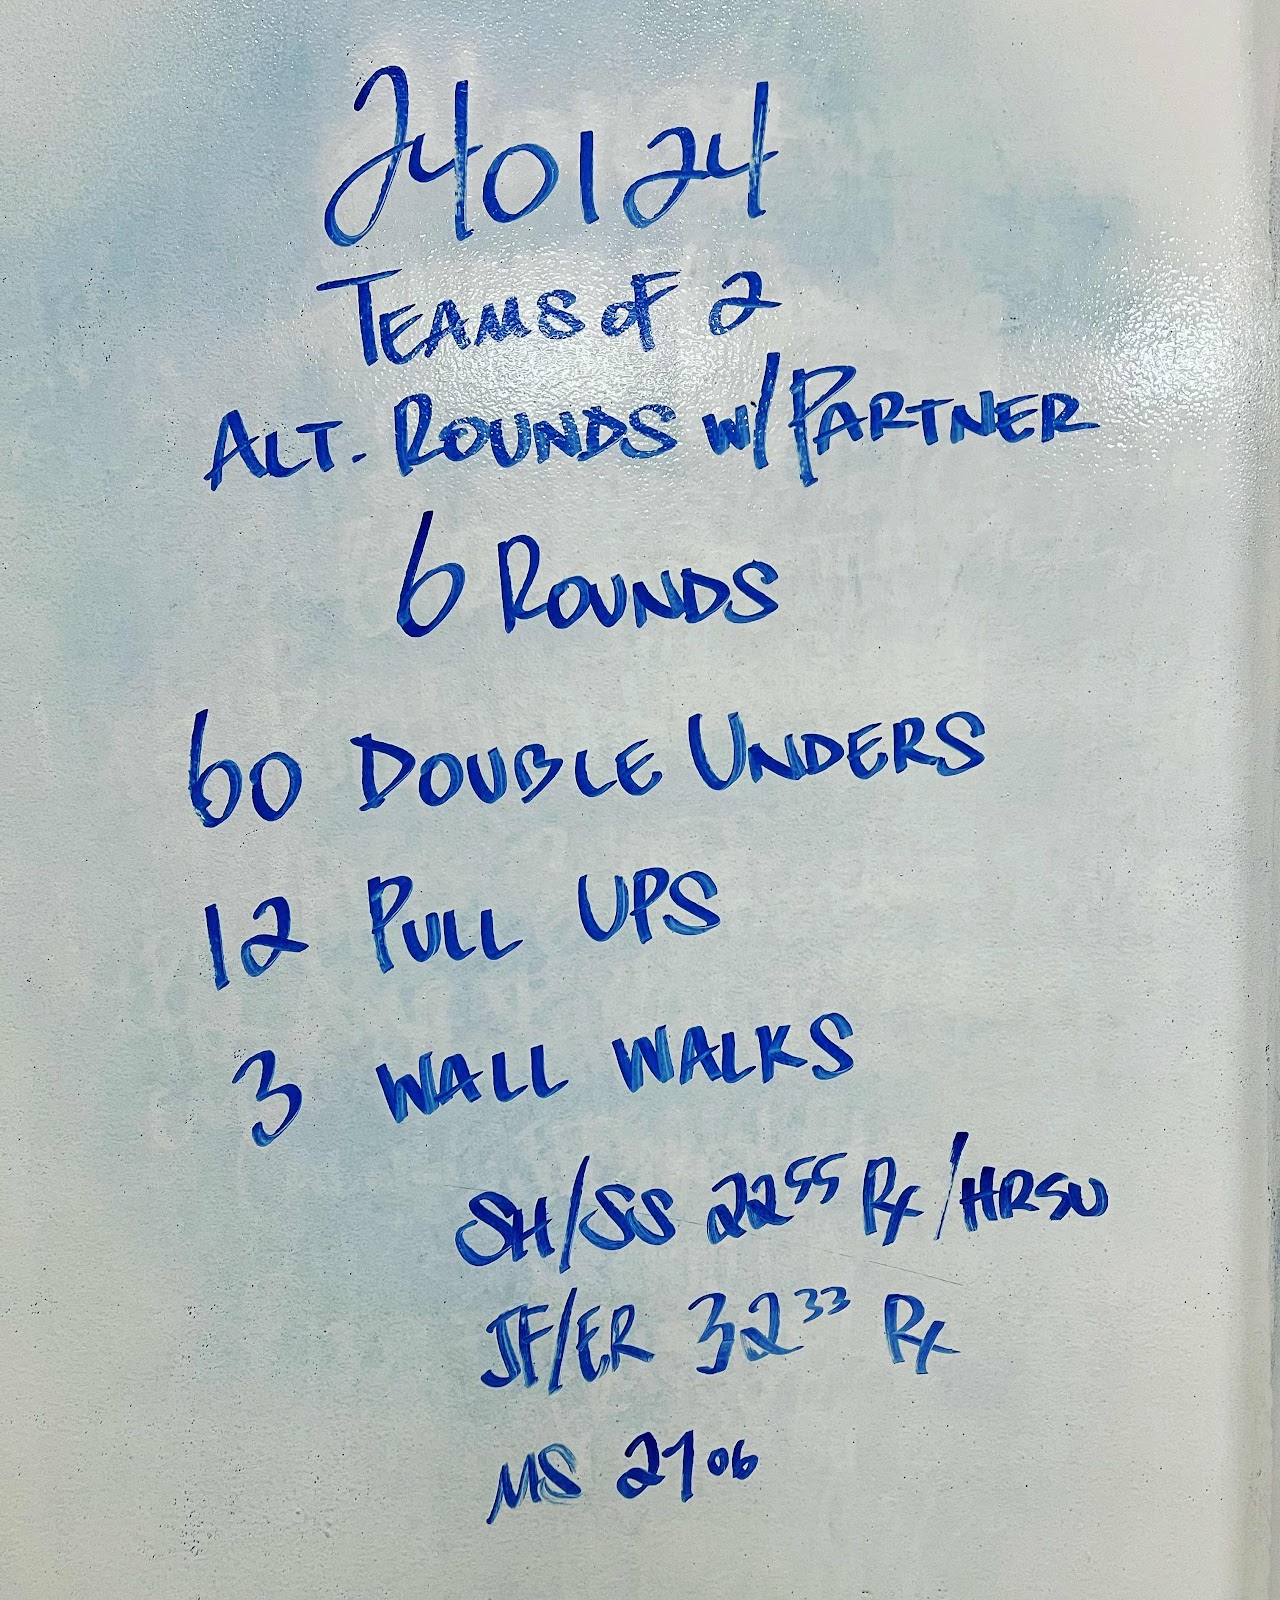 240124
TEAMS OF 2
ALT. ROUNDS W/PARTNER
6 ROUNDS
60 DOUBLE UNDERS
12 PULL UPS
3 WALL WALKS
SH/SS 22 55 Rx/HRSU
JF/ER 32 33 Rx
MS 27 06